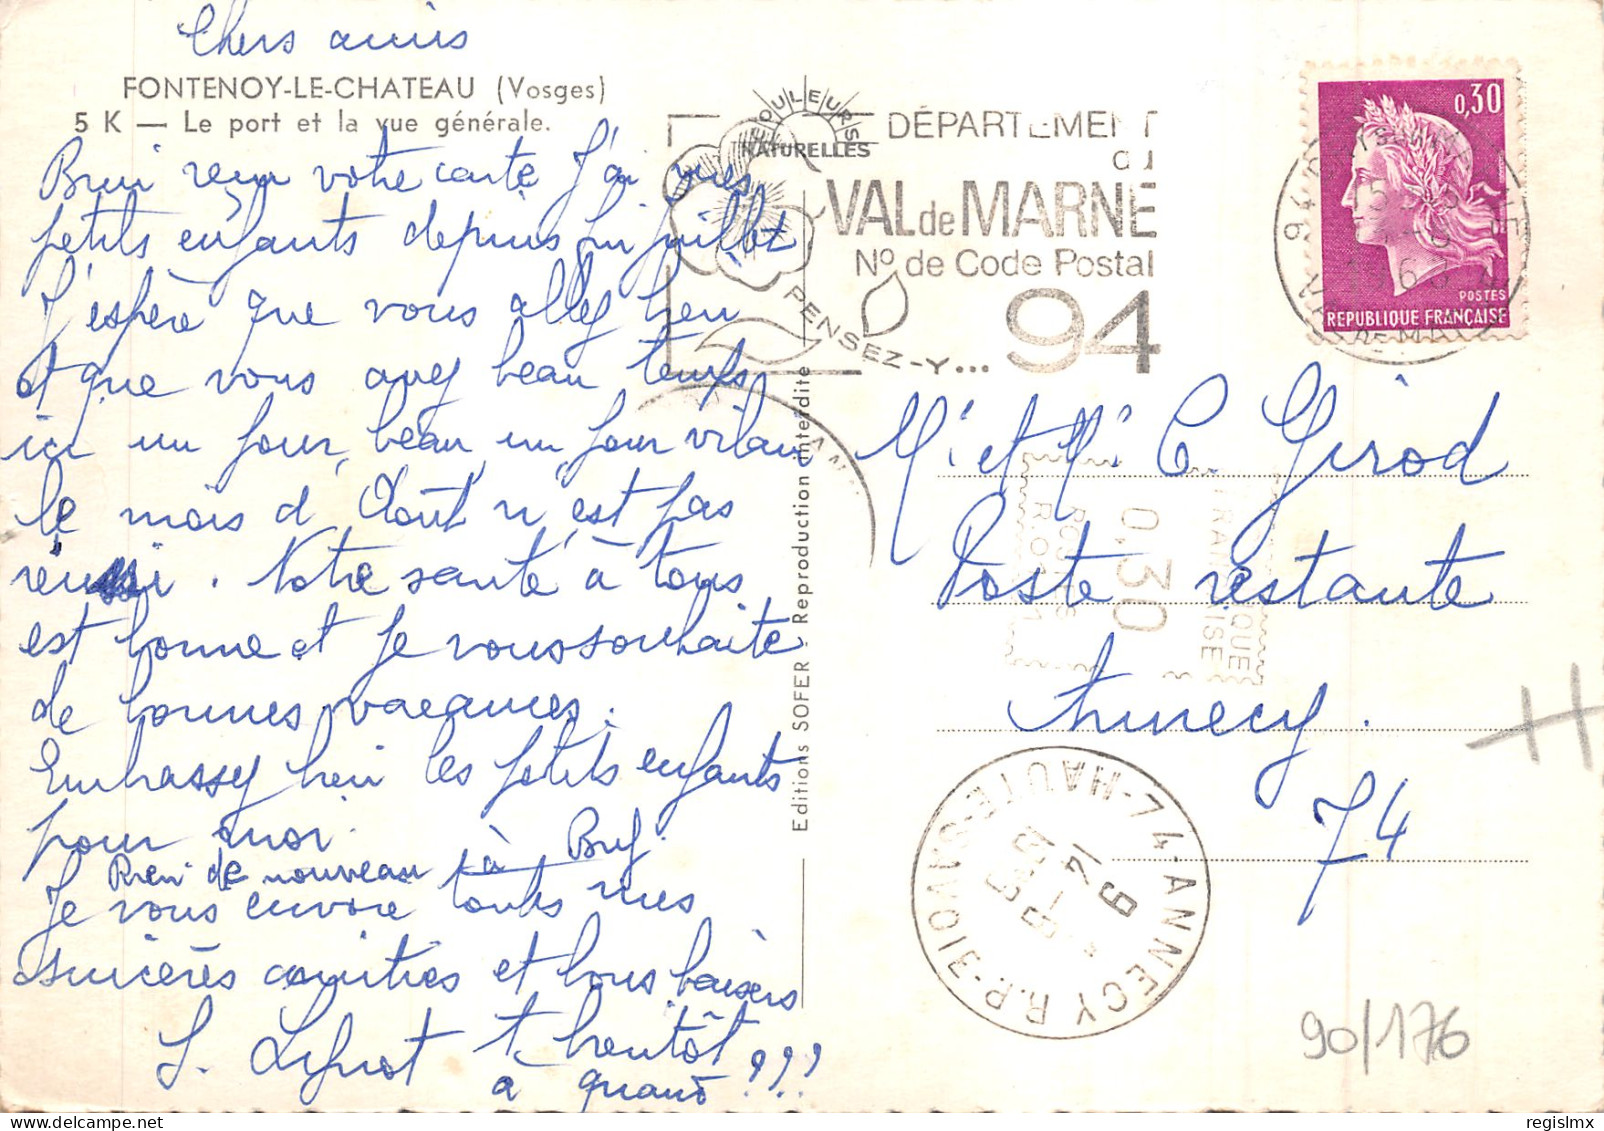 Chers amis
FONTENOY-LE-CHATEAU (Vosges)
5 K — Le port et la vue générale.
Bien reçu votre carte J'ai mes
petits enfants depuis fin juillet
J'espère que vous allez bien
et que vous avez beau temps
ici un jour beau, un jour vilain
le mois d'Août n'est pas
réussi. Notre santé à tous
est bonne et je vous souhaite
de bonnes vacances.
Embrassez bien les petits enfants
pour moi.
Rien de nouveau à Buf.
Je vous envoie toutes mes
sincères amitiés et bons baisers
S.
à bientôt
à quand ???
Editions SOFER - Reproduction interdite
COULEURS
NATURELLES
PENSEZ-Y...
DÉPARTEMENT
du
VAL de MARNE
N° de Code Postal
94
0,30
POSTES
REPUBLIQUE FRANÇAISE
1967
0,30
POSTES
Mr et Mme C. Girod
Poste restante
Annecy.
74
74-ANNECY R.P.-HAUTE SAVOIE
H
90/176
www.delcampe.net
regislmx